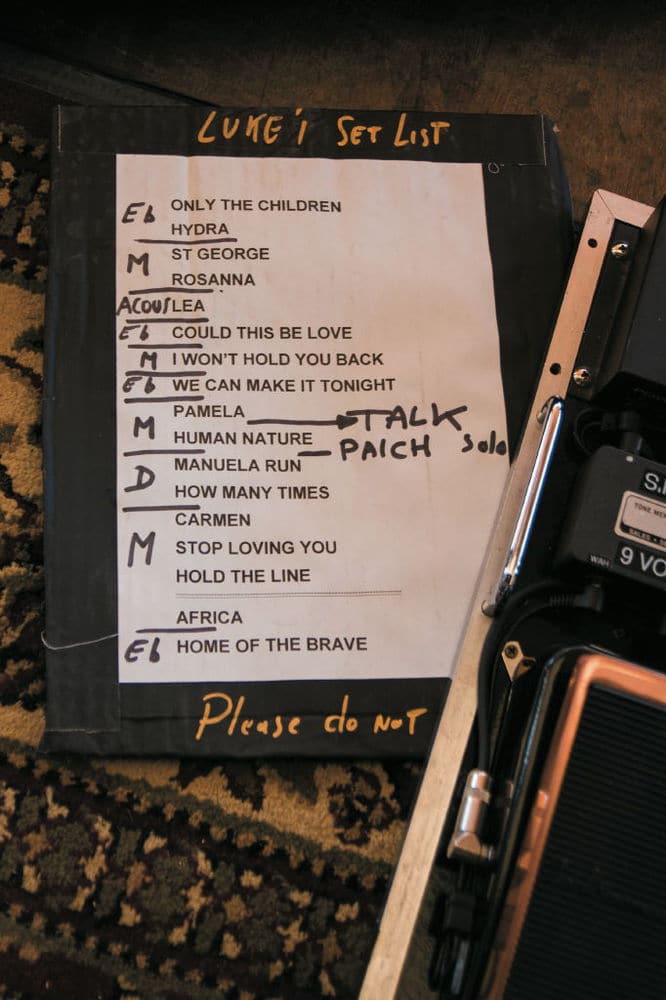 LUKE'S SET LIST
Eb ONLY THE CHILDREN
HYDRA
M ST GEORGE
ROSANNA
ACOUS LEA
Eb COULD THIS BE LOVE
M I WON'T HOLD YOU BACK
Eb WE CAN MAKE IT TONIGHT
PAMELA TALK
M HUMAN NATURE PAICH Solo
MANUELA RUN
D HOW MANY TIMES
CARMEN
M STOP LOVING YOU
HOLD THE LINE
AFRICA
Eb HOME OF THE BRAVE
Please do NOT
WAH
9 VO